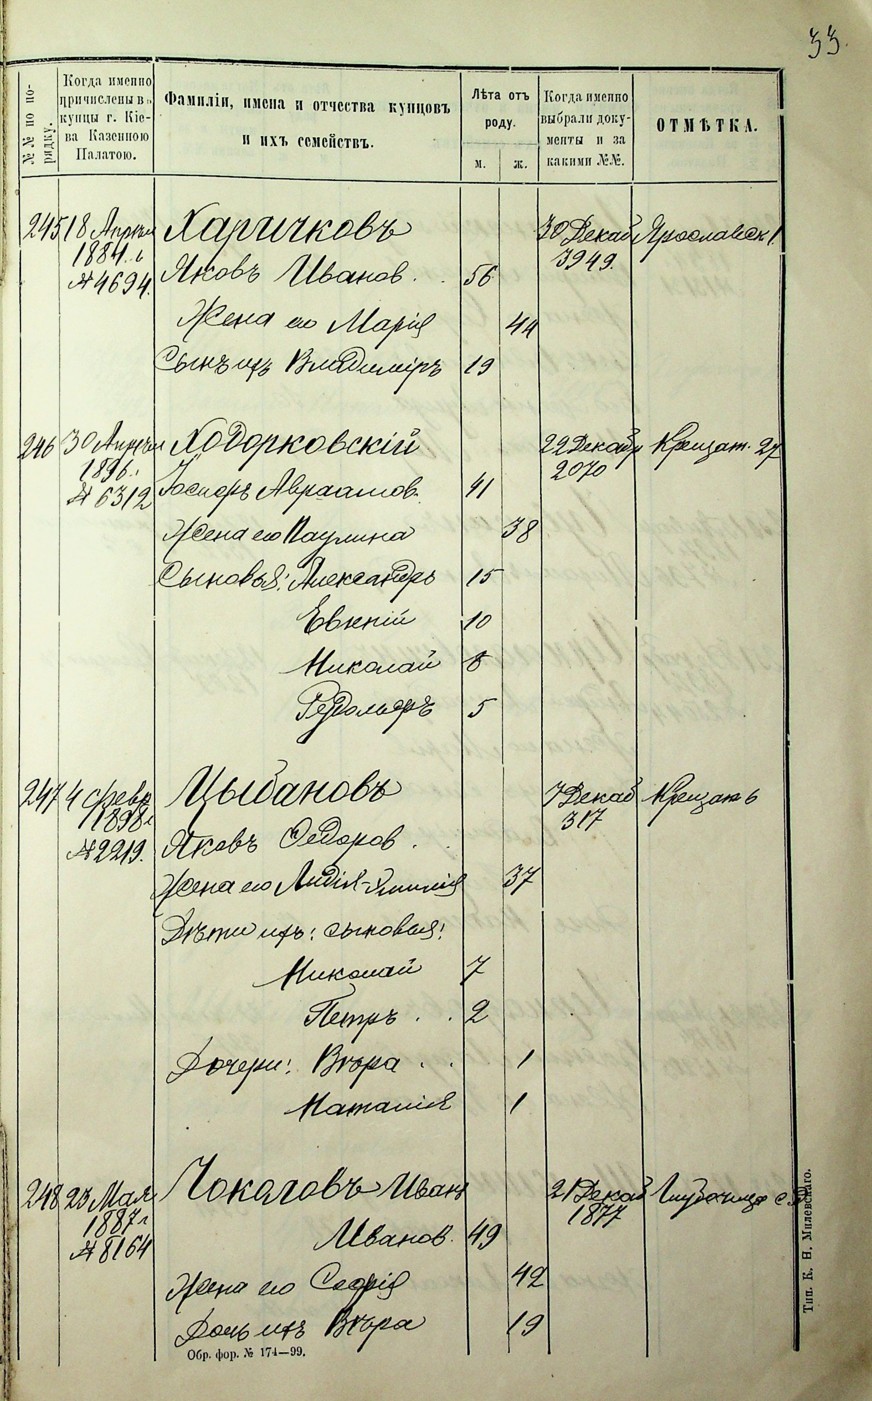 33.
№№ по по-
рядку.
Когда именно
причислены въ
купцы г. Кіе-
ва Казенною
Палатою.
Фамиліи, имена и отчества купцовъ
и ихъ семействъ.
Лѣта отъ
роду.
м.
ж.
Когда именно
выбрали доку-
менты и за
какими №№.
ОТМѢТКА.
245 18 Апрѣля Харичковъ 30 Декаб Ярославск 1
1884 г. 3949.
№ 4694. Яковъ Иванов. 56
Жена его Марія 44
Сынъ ихъ Владиміръ 19
246 30 Апрѣля Ходорковскій 22 Декабр Крещат. 27
1896 г. 2070
№ 6312 Іосифъ Авраамов. 41
Жена его Паулина 38
Сыновья: Александръ 15
Евгеній 10
Николай 8
Рудольфъ 5
247 4 февр Цыбановъ 7 Декаб Крещат 6
1898 г 317
№ 2219. Яковъ Федоров.
Жена его Лидія-Эмилія 37
Дѣти ихъ: сыновья:
Николай 7
Петръ 2
Дочери: Вѣра 1
Наталія 1
248 23 Мая Чоколовъ Иван 21 Декаб Глубочица с. д
1887 г 1877
№ 8164 Иванов. 49
Жена его Софія 42
Дочь ихъ Вѣра 19
Обр. фор. № 174—99.
Тип. К. Н. Милевскаго.